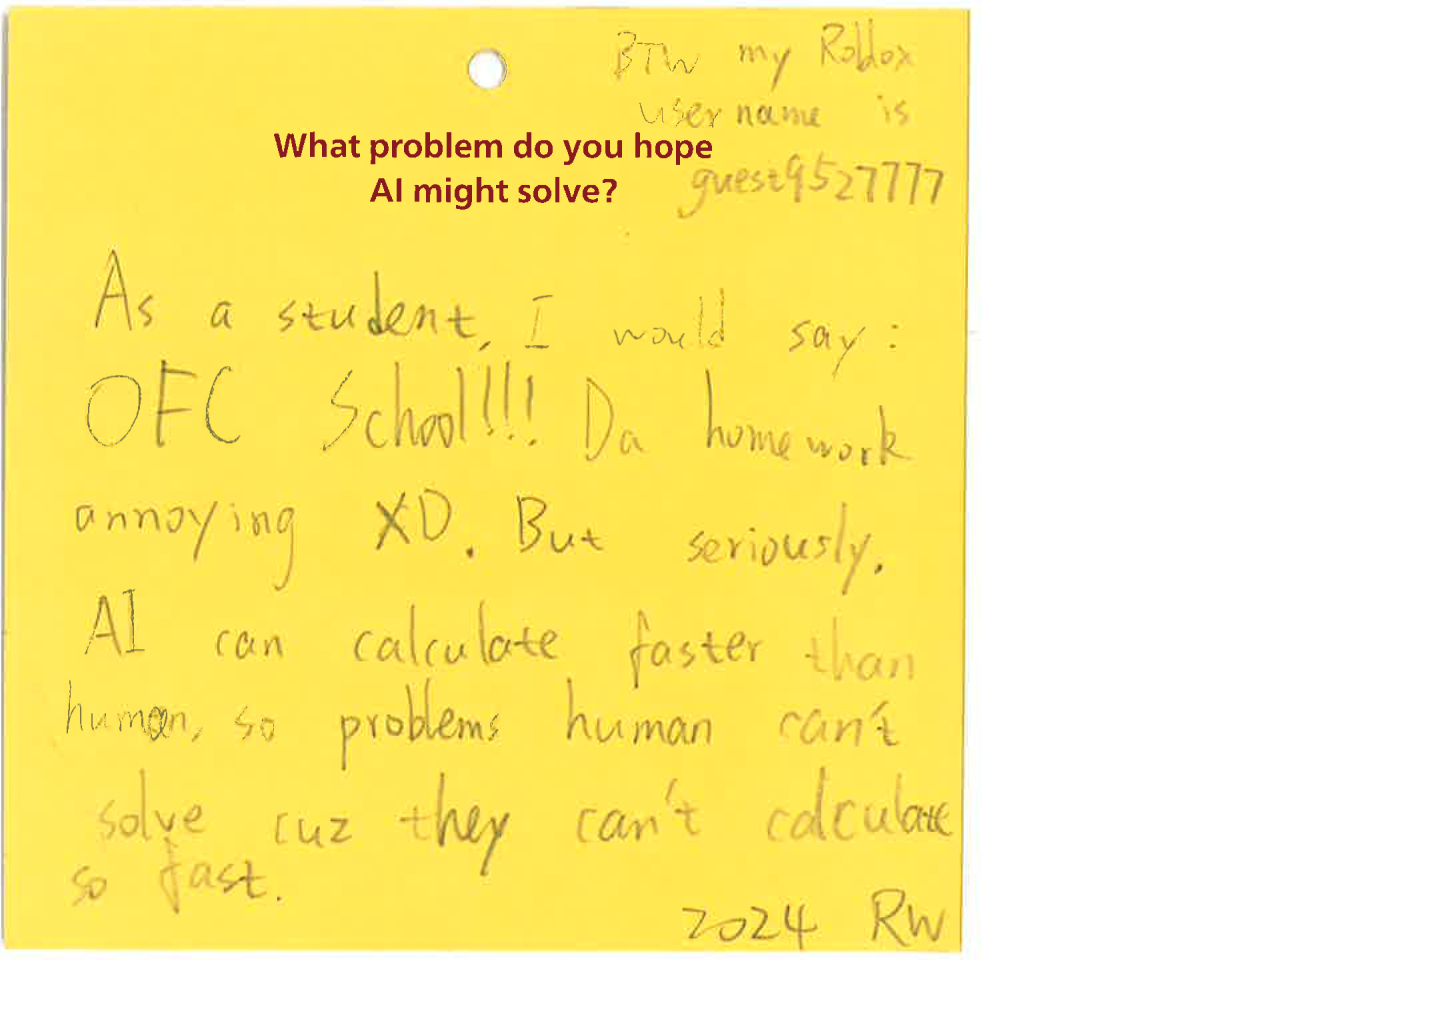 BTW my Roblox
username is
guest9527777
What problem do you hope
AI might solve?
As a student, I would say:
OFC School!!! Da homework
annoying XD. But seriously.
AI can calculate faster than
human, so problems human can't
solve cuz they can't calculate
so fast.
2024 RW